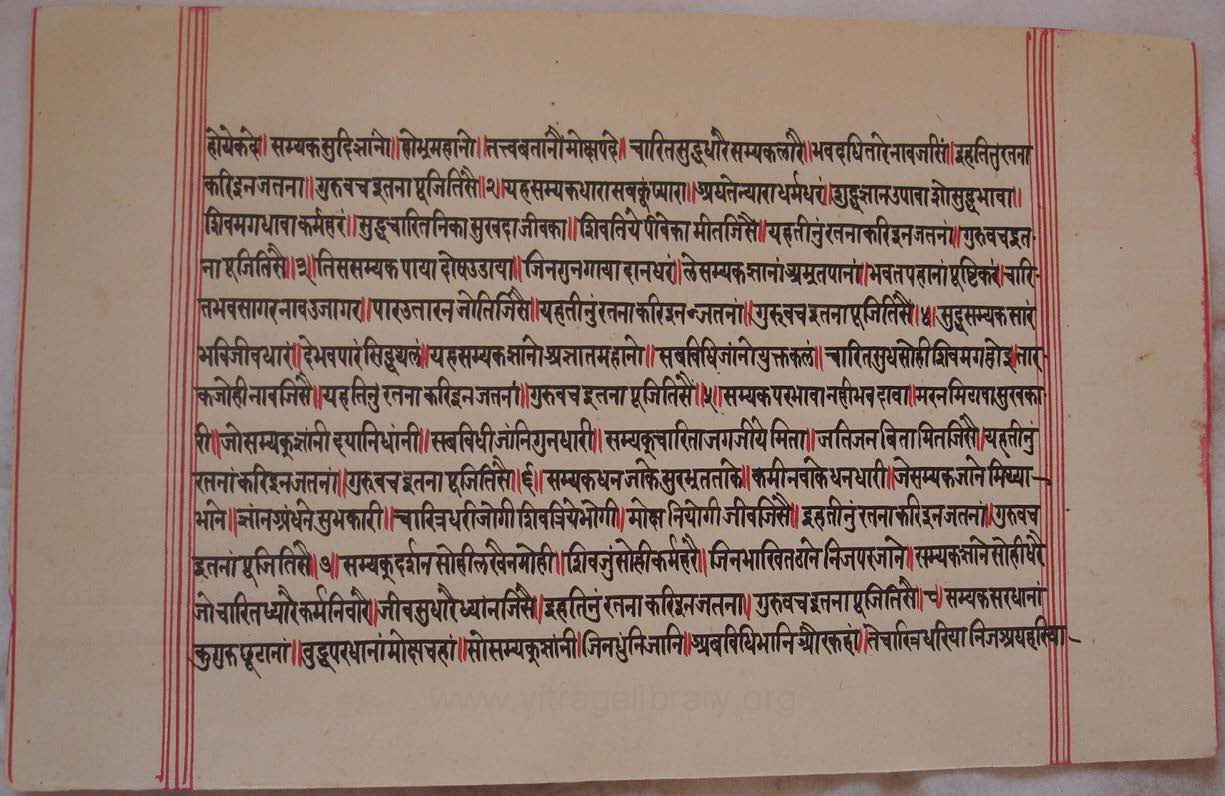 होयेकदे॥ सम्यकसुदिज्ञानो॥ होभ्रमहानो॥ तत्त्वबतानौं मोक्षपदे॥ चारितसुद्धधीरै सम्यकलारै॥ भवदधितारे नावजीसैं॥ इहतितुरतना
करिइनजतना॥ गुरुवचइतना पूजितिसै॥२॥ यहसम्यकधारा सबकूंप्यारा॥ अघतेन्यारा धर्मधरं॥ शुद्धज्ञानउपावा होसुद्धभावा॥
शिवमगधावा कर्महरं॥ सुद्धचारितनिका सुखदाजीवका॥ शिवतिये पीवका मीतजिसै॥ यहतीनुंरतना करिइनजतनां॥ गुरुवचइत-
ना पूजितिसै॥३॥ तिससम्यकपाया दोषउडाया॥ जिनगुनगाया दानधरं॥ लेसम्यकज्ञानां अमृतपानां॥ भवतपहानां पूष्टिकरं॥ चारि-
तभवसागर नावउजागर॥ पारउतारन जोतिर्जिसै॥ यहतीनुंरतना करिइनजतनां॥ गुरुवचइतना पूजितिसै॥४॥ सुद्धसम्यकसारं
भविजीवधारं॥ देभवपारं सिद्धथलं॥ यहसम्यकज्ञांनो अज्ञातमहानो॥ सबविधिजांनो युक्तकलं॥ चारितसुधसोही शिवमगहोइ॥ तार-
कजोही नावजिसै॥ यहतिनुरतना करिइनजतनां॥ गुरुवचइतना पूजितिसै॥५॥ सम्यकपरभावा नहीभवदावा॥ मरनमिटावा सुखका-
री॥ जोसम्यक्ज्ञांनी दयानिधांनी॥ सबविधीजांनि गुनधारी॥ सम्यक्चारिता जगजीये मिता॥ जतिजनबिता मितजिसै॥ यहतीनुं
रतनां करिइनजतनां॥ गुरुवचइतना पूजितिसै॥६॥ सम्यकधनजाके सुरभृतताके॥ कमीनवांके धनधारी॥ जेसम्यकजाने मिथ्या-
भाने॥ ज्ञांनअंधेने सुभकारी॥ चारित्रधरीजोगी शिवत्रियेभोगी॥ मोक्षनियोगी जीवजिसै॥ इहतीनुंरतना करिइनजतनां॥ गुरुवच
इतनां पूजितिसै॥७॥ सम्यक्दर्शन सोहीलखैनमोही॥ शिवजुंसोही कर्महरै॥ जिनभाखितठाने निजपरजाने॥ सम्यकज्ञाने सोहीधरै
जोचारितध्यारै कर्मनिवारै॥ जीवसुधारै ध्यांनजिसै॥ इहतिनुंरतना करिइनजतना॥ गुरुवचइतना पूजितिसै॥८॥ सम्यकसरधानां
कुगुरुछूटानां॥ बुद्धपरधानां मोक्षचहा॥ सोसम्यक्ज्ञांनी जिनधुंनिजानि॥ अबविधिभानि औरकहां॥ तेचारित्रधरिया निजअघहरिया-
www.vitragelibrary.org